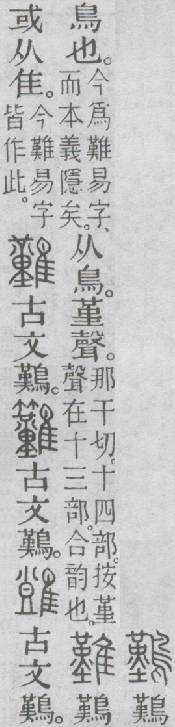 𪄿
鳥也。今爲難易字、而本義隱矣。从鳥。堇聲。那干切。十四部。按堇聲在十三部。合韵也。難𪄿
或从隹。今難易字皆作此。古文𪄿。古文𪄿。古文𪄿。